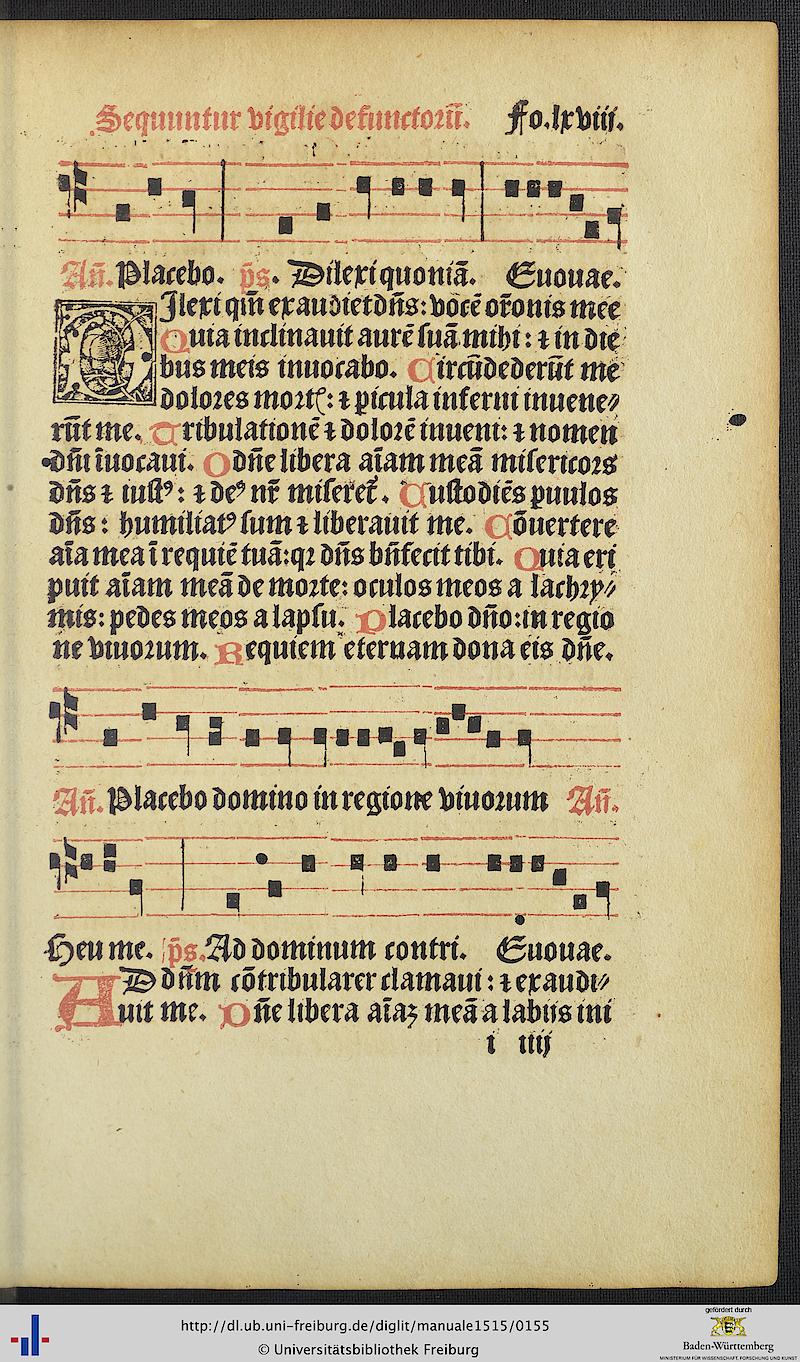 Sequuntur vigilie defunctorū. Fo.lxviij.
Añ. Placebo. p̄s. Dilexi quoniā. Euouae.
Ilexi qm̄ exaudiet dn̄s: vocē or̄onis mee
Quia inclinauit aurē suā mihi: ⁊ in die
bus meis inuocabo. Circūdederūt me
dolores mort: ⁊ picula inferni inuene⸗
rūt me. Tribulationē ⁊ dolorē inueni: ⁊ nomen
dn̄i īuocaui. O dn̄e libera aīam meā misericors
dn̄s ⁊ iustꝰ: ⁊ deꝰ nr̄ miseret̄. Custodiēs puulos
dn̄s: humiliatꝰ sum ⁊ liberauit me. Cōuertere
aīa mea ī requiē tuā: qꝛ dn̄s bn̄fecit tibi. Quia eri
puit aīam meā de morte: oculos meos a lachry⸗
mis: pedes meos a lapsu. Placebo dn̄o: in regio
ne viuorum. Requiem eternam dona eis dn̄e.
Añ. Placebo domino in regione viuorum Añ.
Heu me. p̄s. Ad dominum contri. Euouae.
AD dn̄m cōtribularer clamaui: ⁊ exaudi⸗
uit me. Dn̄e libera aīaꝫ meā a labijs ini
i iiij
http://dl.ub.uni-freiburg.de/diglit/manuale1515/0155
© Universitätsbibliothek Freiburg
gefördert durch
Baden-Württemberg
MINISTERIUM FÜR WISSENSCHAFT, FORSCHUNG UND KUNST